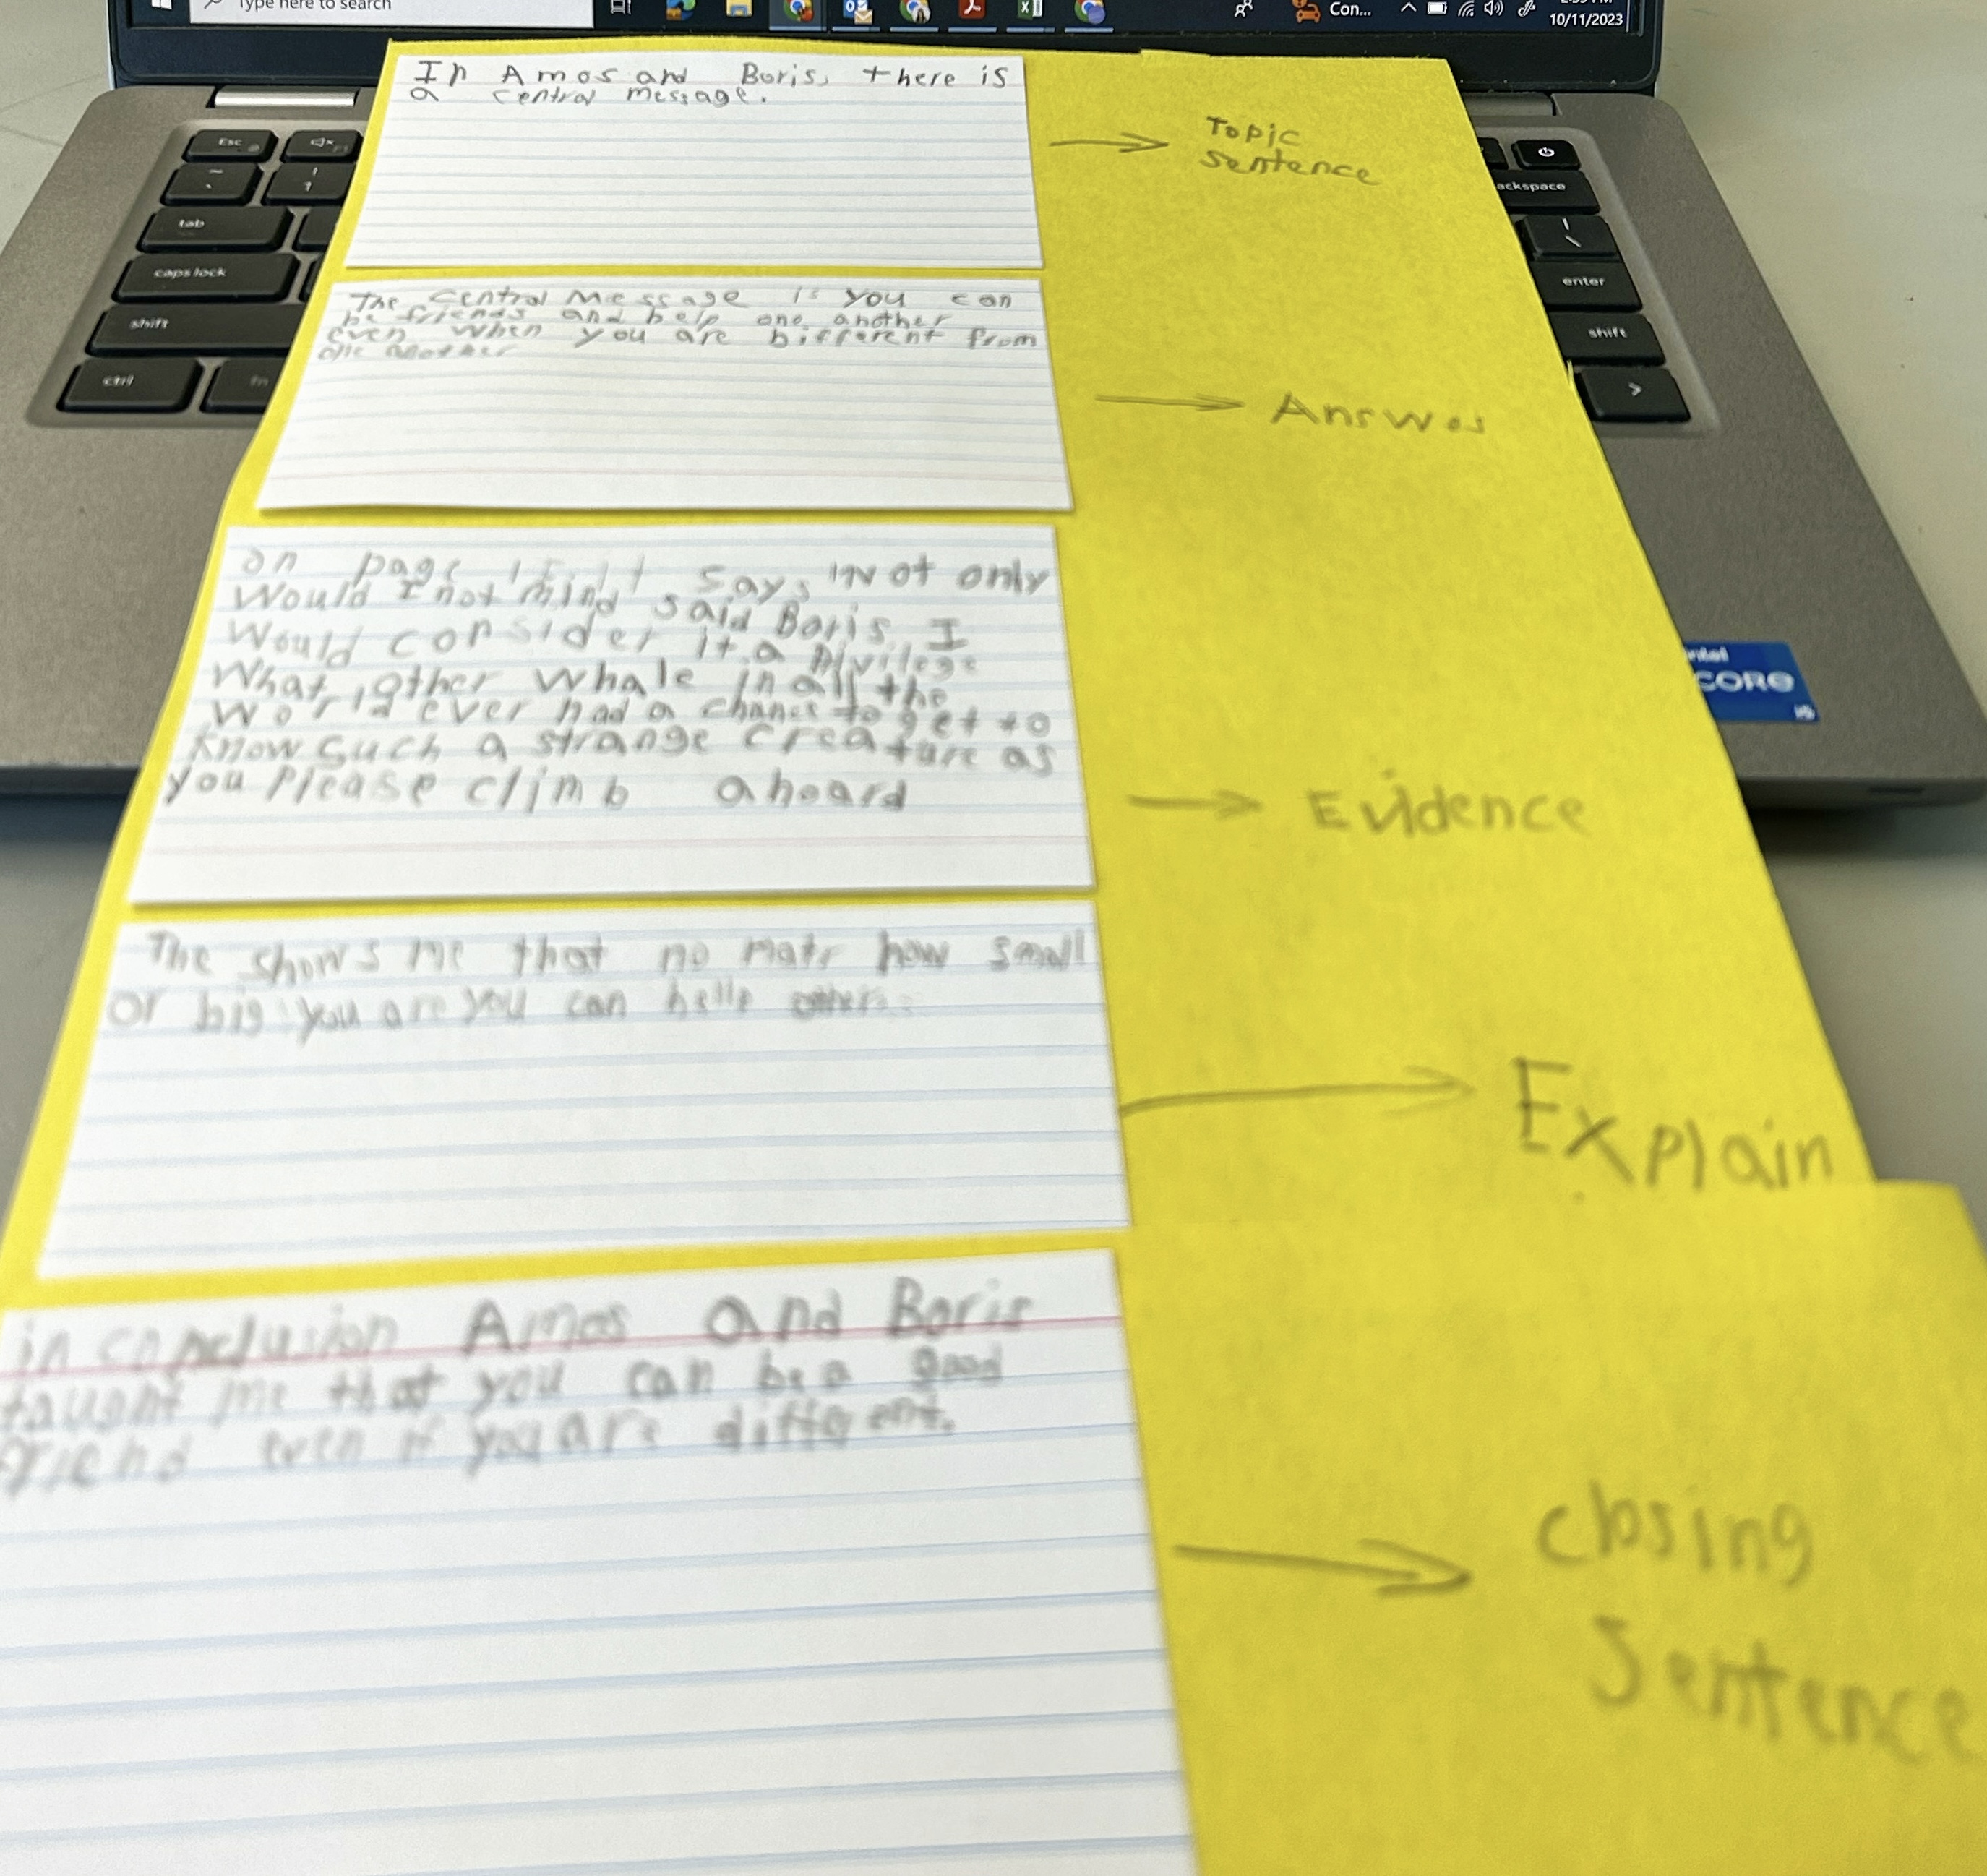 Type here to search
Con...
10/11/2023
Esc
tab
caps lock
shift
ctrl
fn
ackspace
enter
shift
intel
CORe
i5
In Amos and Boris, there is
a central message.
Topic
sentence
The central Message is you can
be friends and help one another
even when you are different from
one another
Answer
on page it says "Not only
Would I not mind said Boris I
Would consider it a privilege
What other whale in all the
World ever had a chance to get to
Know such a strange creature as
you Please climb aboard
Evidence
The shows me that no matr how small
or big you are you can hellp others
Explain
in conclusion Amos and Boris
taught me that you can be a good
friend even if you are different.
closing
Sentence